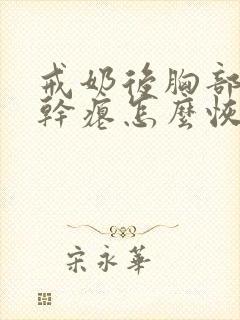 戒奶後胸部
幹癟怎麼恢
宋永華